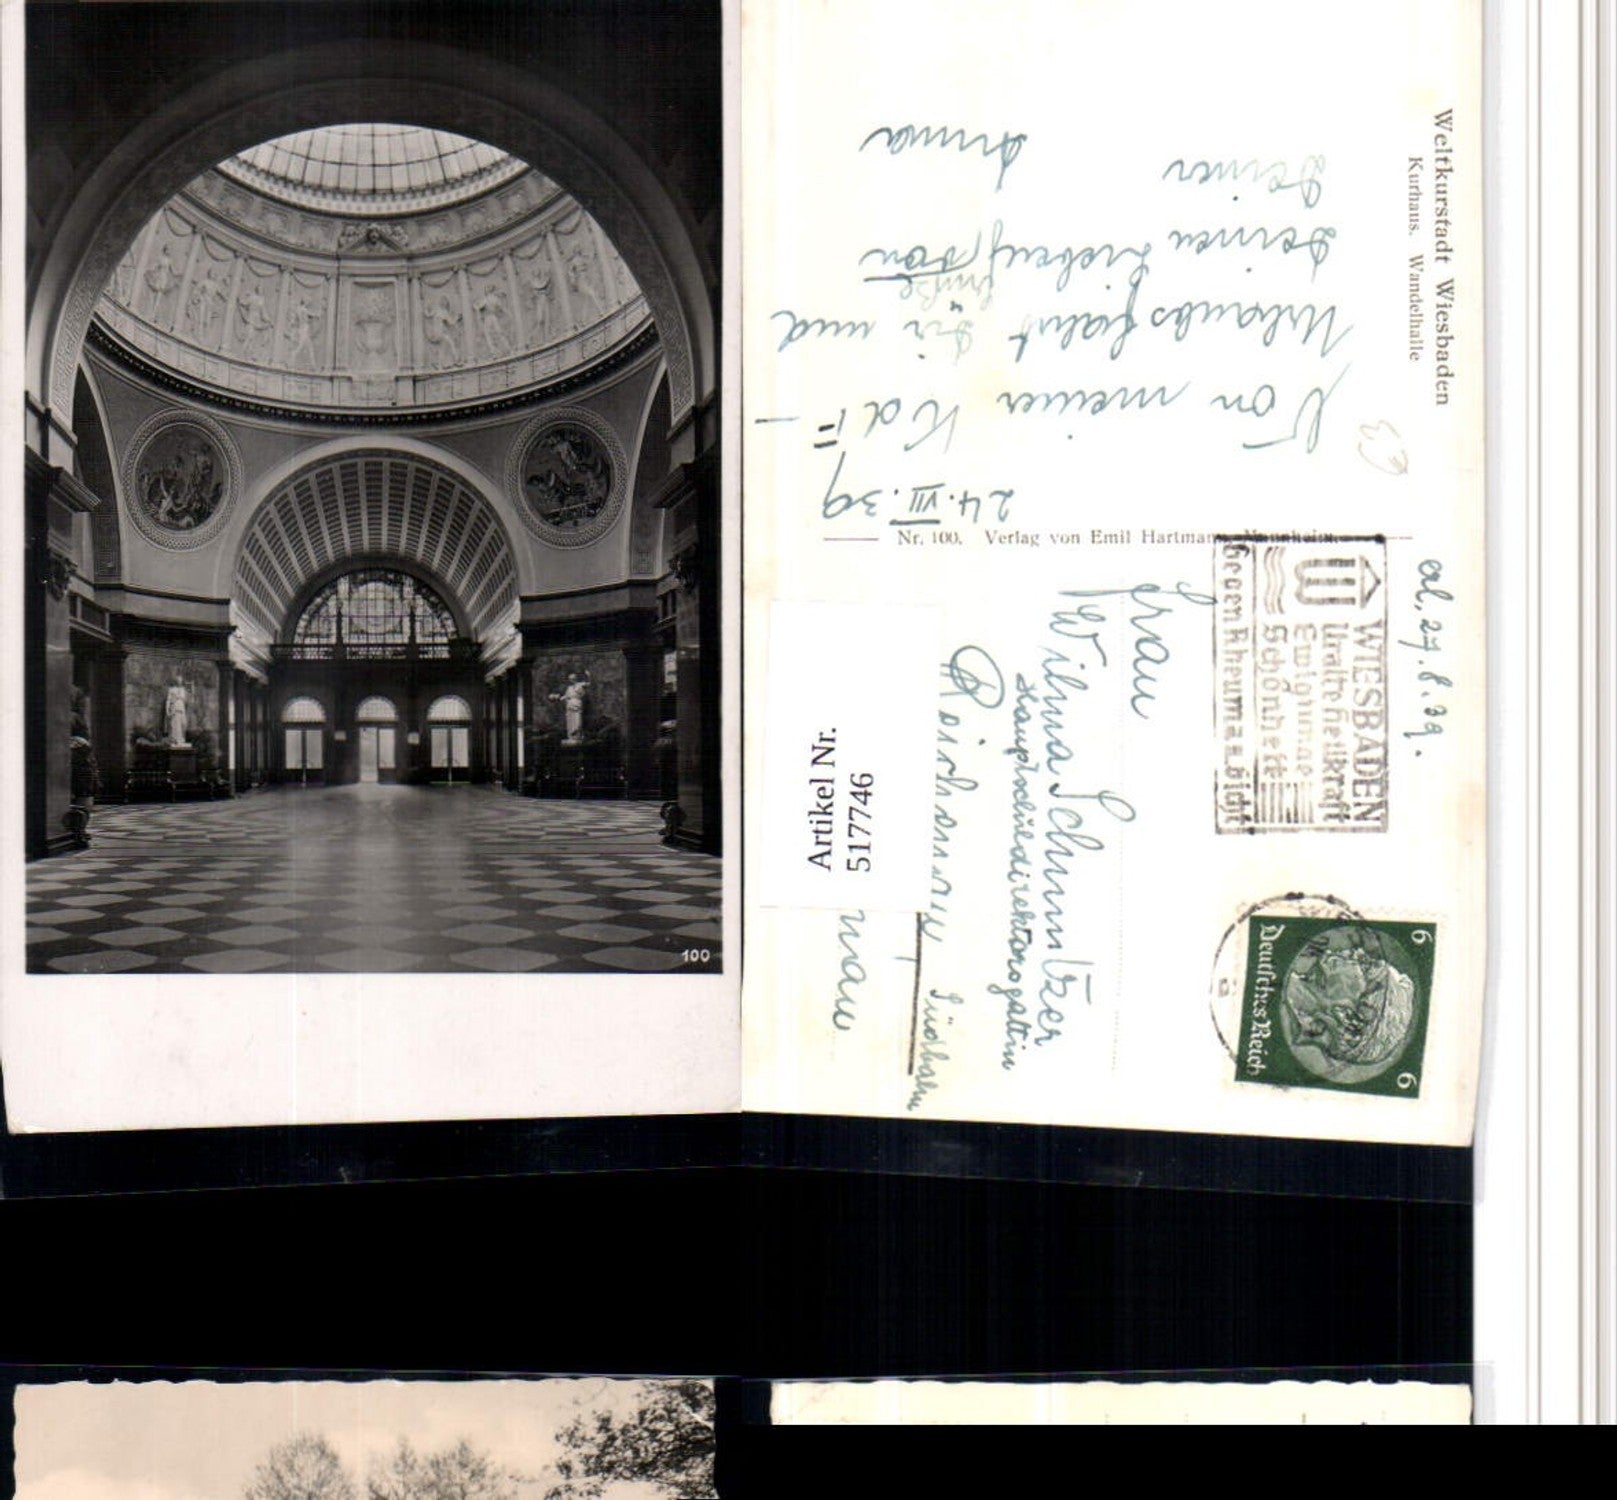 100
Weltkurstadt Wiesbaden
Kurhaus. Wandelhalle
24.VII.39
Von meiner KdF-
Urlaubsfahrt Dir und
Deinen Lieben
Grüße von
Deiner
Irma
Nr. 100. Verlag von Emil Hartmann, Mannheim.
erl. 27.8.39.
WIESBADEN
Uralte Heilkraft
Ewigjunge
Schönheit
Gegen Rheuma u. Gicht
6
6
Deutsches Reich
Frau
Wilma Schmutzer
Hauptschuldirektorsgattin
Reichenau Südbahn
Artikel Nr.
517746